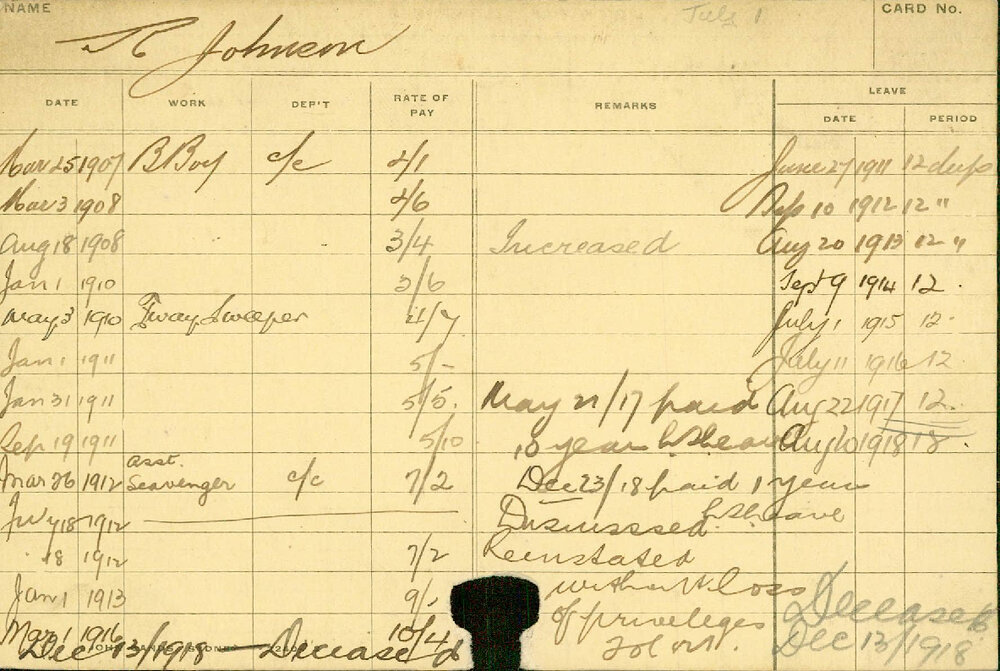 NAME CARD No.
Johnson
DATE WORK DEP'T RATE OF PAY REMARKS LEAVE
DATE PERIOD
Mar 25 1907 B Boy c/c 2/1 June 27 1911 12 days
Mar 3 1908 2/6 Sep 10 1912 12 "
Aug 18 1908 3/4 Increased Aug 20 1913 12 "
Jan 1 1910 3/6 Sept 9 1914 12.
May 3 1910 T way Sweeper 4/7 July 1 1915 12.
Jan 1 1911 5/- July 11 1916 12
Jan 31 1911 5/5. May 21/17 paid Aug 22 1917 12.
Sep 19 1911 5/10 10 year Aug 10 1918 18.
Mar 26 1912 asst. Scavenger c/c 7/2 Dec 23/18 paid 1 year
July 18 1912 Dismissed
18 1912 7/2 Reinstated
Jan 1 1913 9/- without loss Deceased
Mar 1 1916 10/4 of privileges Dec 13/1918
Dec 13/1918 Deceased